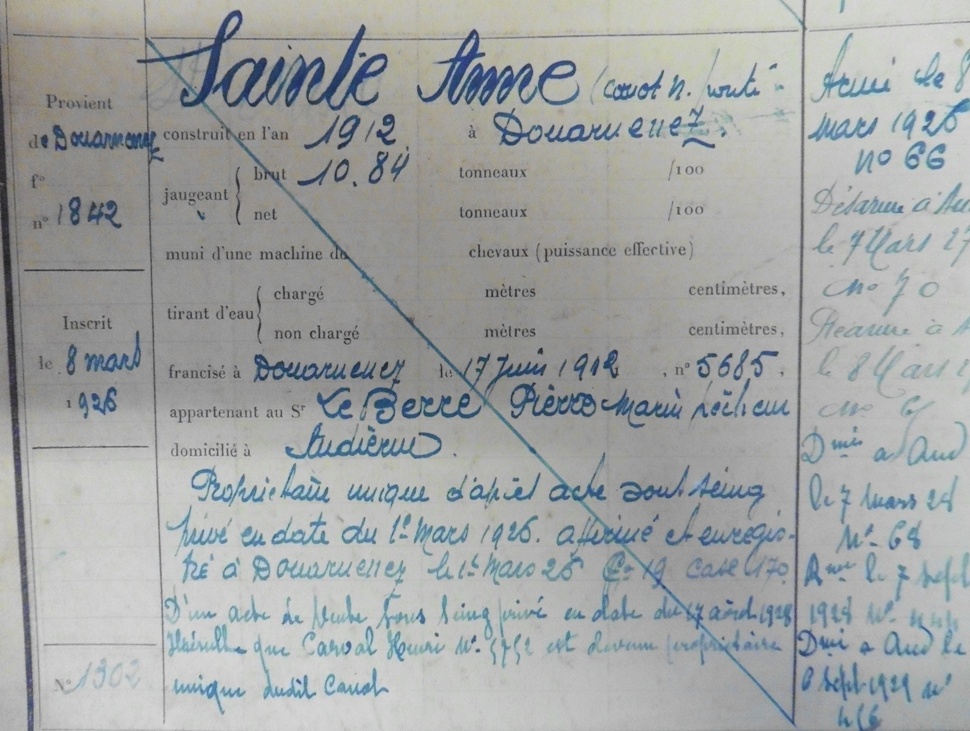 Provient
de Douarnenez
fº
nº 1842
Inscrit
le 8 mars
1926
Nº 1302
Sainte Anne (canot n. ponté
construit en l'an 1912 à Douarnenez.
jaugeant
brut 10.84 tonneaux /100
net tonneaux /100
muni d'une machine de chevaux (puissance effective)
tirant d'eau
chargé mètres centimètres,
non chargé mètres centimètres,
francisé à Douarnenez le 17 Juin 1912, nº 5685,
appartenant au Sr Le Berre Pierre Marie pêcheur
domicilié à Audierne
Propriétaire unique d'après acte sous seing
privé en date du 1er Mars 1926. affirmé et enregis-
tré à Douarnenez le 1er Mars 26 Cse 170
D'un acte de vente sous seing privé en date du 17 août 1928
que Carval Henri Nº 5752 est devenu propriétaire
unique dudit Canot
Armé le 8
mars 1926
nº 66
Désarmé à Au
le 7 Mars 27
nº 70
Réarmé à A
le 8 Mars
nº
Dmé à Aud
le 7 mars 28
Nº 68
Rmé le 7 sept
1928 Nº
Dmé à Aud le
sept 1929 nº